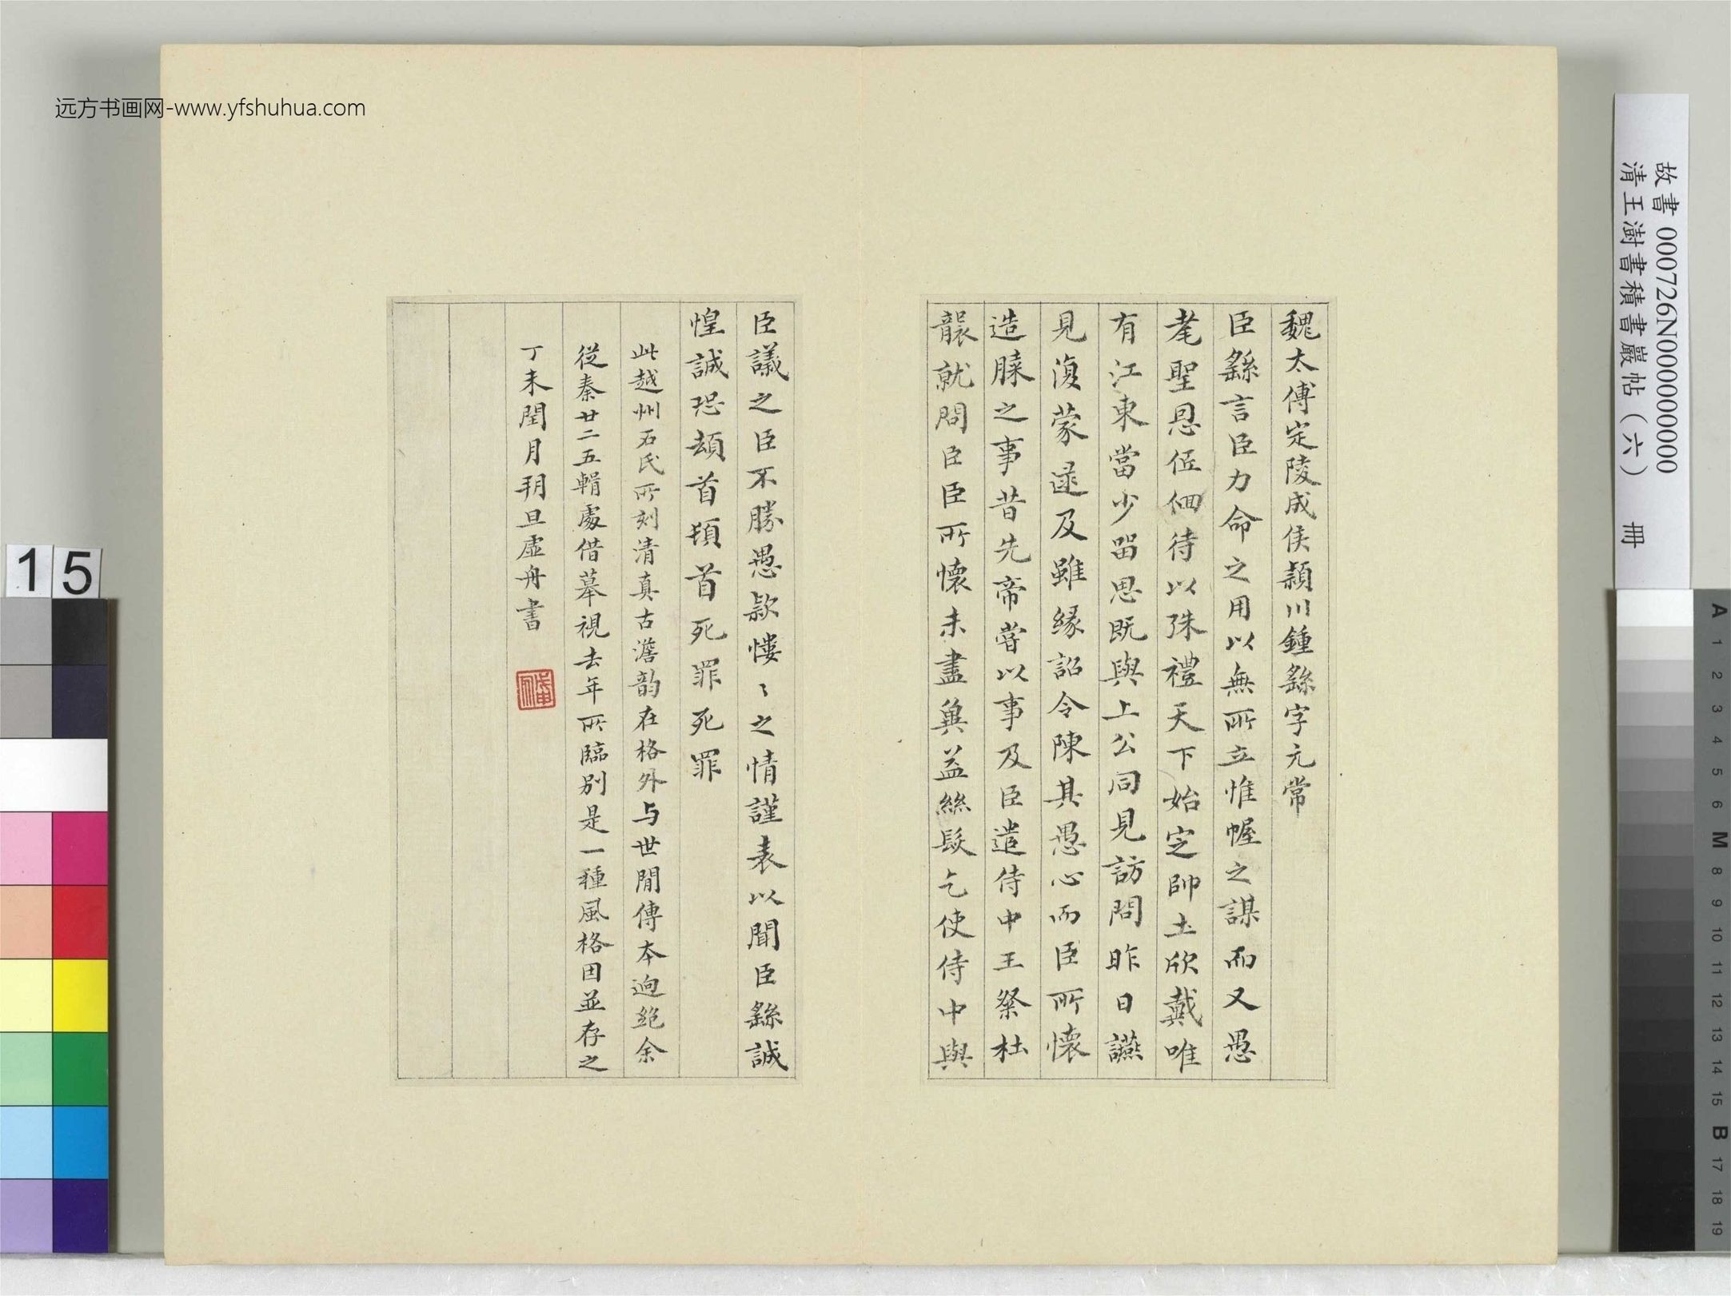 远方书画网-www.yfshuhua.com
故書 000726N000000000
清王澍書積書巖帖（六） 冊
魏太傅定陵成侯潁川鍾繇字元常
臣繇言臣力命之用以無所立惟幄之謀而又愚
耄聖恩低佪待以殊禮天下始定帥土欣戴唯
有江東當少留思既與上公同見訪問昨日讌
見復蒙逮及雖緣詔令陳其愚心而臣所懷
造膝之事昔先帝嘗以事及臣遣侍中王粲杜
襲就問臣臣所懷未盡冀益絲髮乞使侍中與
臣議之臣不勝愚款慺〻之情謹表以聞臣繇誠
惶誠恐頓首頓首死罪死罪
此越州石氏所刻清真古澹韵在格外与世間傳本迥絕余
從秦廿二五輯處借摹視去年所臨別是一種風格因並存之
丁未閏月朔旦虛舟書
15
A 1 2 3 4 5 6 M 8 9 10 11 12 13 14 15 B 17 18 19